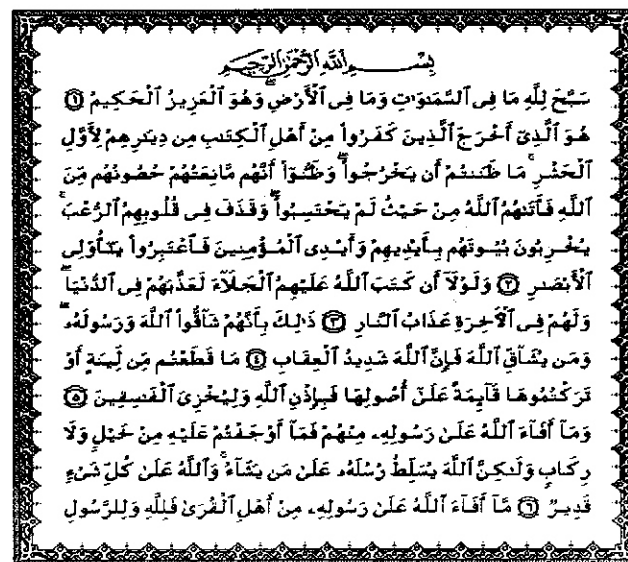 بِسْمِ ٱللَّهِ ٱلرَّحْمَٰنِ ٱلرَّحِيمِ
سَبَّحَ لِلَّهِ مَا فِى ٱلسَّمَٰوَٰتِ وَمَا فِى ٱلْأَرْضِ ۖ وَهُوَ ٱلْعَزِيزُ ٱلْحَكِيمُ ١
هُوَ ٱلَّذِىٓ أَخْرَجَ ٱلَّذِينَ كَفَرُوا۟ مِنْ أَهْلِ ٱلْكِتَٰبِ مِن دِيَٰرِهِمْ لِأَوَّلِ
ٱلْحَشْرِ ۚ مَا ظَنَنتُمْ أَن يَخْرُجُوا۟ ۖ وَظَنُّوٓا۟ أَنَّهُم مَّانِعَتُهُمْ حُصُونُهُم مِّنَ
ٱللَّهِ فَأَتَىٰهُمُ ٱللَّهُ مِنْ حَيْثُ لَمْ يَحْتَسِبُوا۟ ۖ وَقَذَفَ فِى قُلُوبِهِمُ ٱلرُّعْبَ ۚ
يُخْرِبُونَ بُيُوتَهُم بِأَيْدِيهِمْ وَأَيْدِى ٱلْمُؤْمِنِينَ فَٱعْتَبِرُوا۟ يَٰٓأُو۟لِى
ٱلْأَبْصَٰرِ ٢ وَلَوْلَآ أَن كَتَبَ ٱللَّهُ عَلَيْهِمُ ٱلْجَلَآءَ لَعَذَّبَهُمْ فِى ٱلدُّنْيَا ۖ
وَلَهُمْ فِى ٱلْءَاخِرَةِ عَذَابُ ٱلنَّارِ ٣ ذَٰلِكَ بِأَنَّهُمْ شَآقُّوا۟ ٱللَّهَ وَرَسُولَهُۥ ۖ
وَمَن يُشَآقِّ ٱللَّهَ فَإِنَّ ٱللَّهَ شَدِيدُ ٱلْعِقَابِ ٤ مَا قَطَعْتُم مِّن لِّينَةٍ أَوْ
تَرَكْتُمُوهَا قَآئِمَةً عَلَىٰٓ أُصُولِهَا فَبِإِذْنِ ٱللَّهِ وَلِيُخْزِىَ ٱلْفَٰسِقِينَ ٥
وَمَآ أَفَآءَ ٱللَّهُ عَلَىٰ رَسُولِهِۦ مِنْهُمْ فَمَآ أَوْجَفْتُمْ عَلَيْهِ مِنْ خَيْلٍ وَلَا
رِكَابٍ وَلَٰكِنَّ ٱللَّهَ يُسَلِّطُ رُسُلَهُۥ عَلَىٰ مَن يَشَآءُ ۚ وَٱللَّهُ عَلَىٰ كُلِّ شَىْءٍ
قَدِيرٌ ٦ مَّآ أَفَآءَ ٱللَّهُ عَلَىٰ رَسُولِهِۦ مِنْ أَهْلِ ٱلْقُرَىٰ فَلِلَّهِ وَلِلرَّسُولِ